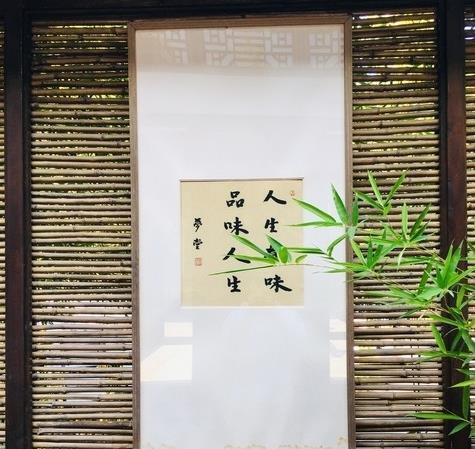 人生味
品味人生
夢堂